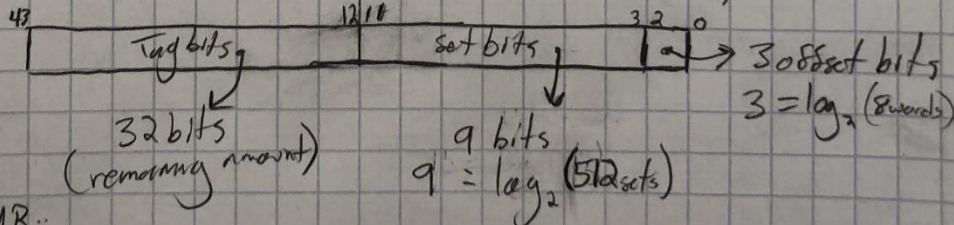 43 12 11 3 2 0
Tag bits set bits 3 offset bits
3 = log₂ (8 words)
32 bits 9 bits
(remaining amount) 9 = log₂ (512 sets)